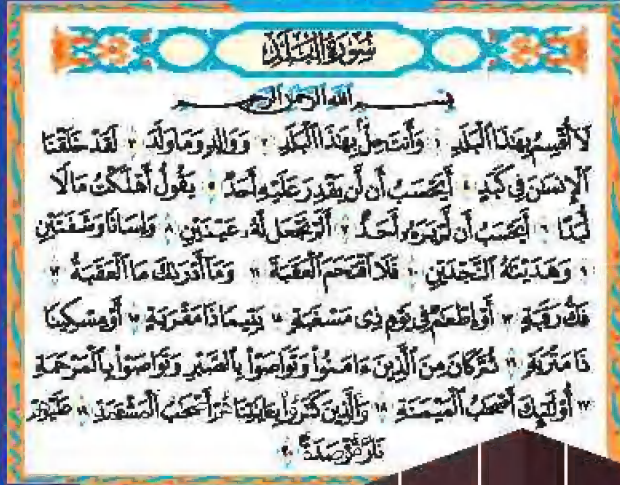 سُورَةُ البَلَدِ
بِسْمِ ٱللَّهِ ٱلرَّحْمَٰنِ ٱلرَّحِيمِ
لَآ أُقْسِمُ بِهَٰذَا ٱلْبَلَدِ ١ وَأَنتَ حِلٌّۢ بِهَٰذَا ٱلْبَلَدِ ٢ وَوَالِدٍ وَمَا وَلَدَ ٣ لَقَدْ خَلَقْنَا
ٱلْإِنسَٰنَ فِى كَبَدٍ ٤ أَيَحْسَبُ أَن لَّن يَقْدِرَ عَلَيْهِ أَحَدٌ ٥ يَقُولُ أَهْلَكْتُ مَالًا
لُّبَدًا ٦ أَيَحْسَبُ أَن لَّمْ يَرَهُۥٓ أَحَدٌ ٧ أَلَمْ نَجْعَل لَّهُۥ عَيْنَيْنِ ٨ وَلِسَانًا وَشَفَتَيْنِ
٩ وَهَدَيْنَٰهُ ٱلنَّجْدَيْنِ ١٠ فَلَا ٱقْتَحَمَ ٱلْعَقَبَةَ ١١ وَمَآ أَدْرَىٰكَ مَا ٱلْعَقَبَةُ ١٢
فَكُّ رَقَبَةٍ ١٣ أَوْ إِطْعَٰمٌ فِى يَوْمٍ ذِى مَسْغَبَةٍ ١٤ يَتِيمًا ذَا مَقْرَبَةٍ ١٥ أَوْ مِسْكِينًا
ذَا مَتْرَبَةٍ ١٦ ثُمَّ كَانَ مِنَ ٱلَّذِينَ ءَامَنُوا۟ وَتَوَاصَوْا۟ بِٱلصَّبْرِ وَتَوَاصَوْا۟ بِٱلْمَرْحَمَةِ
١٧ أُو۟لَٰٓئِكَ أَصْحَٰبُ ٱلْمَيْمَنَةِ ١٨ وَٱلَّذِينَ كَفَرُوا۟ بِـَٔايَٰتِنَا هُمْ أَصْحَٰبُ ٱلْمَشْـَٔمَةِ ١٩ عَلَيْهِمْ
نَارٌ مُّؤْصَدَةٌۢ ٢٠